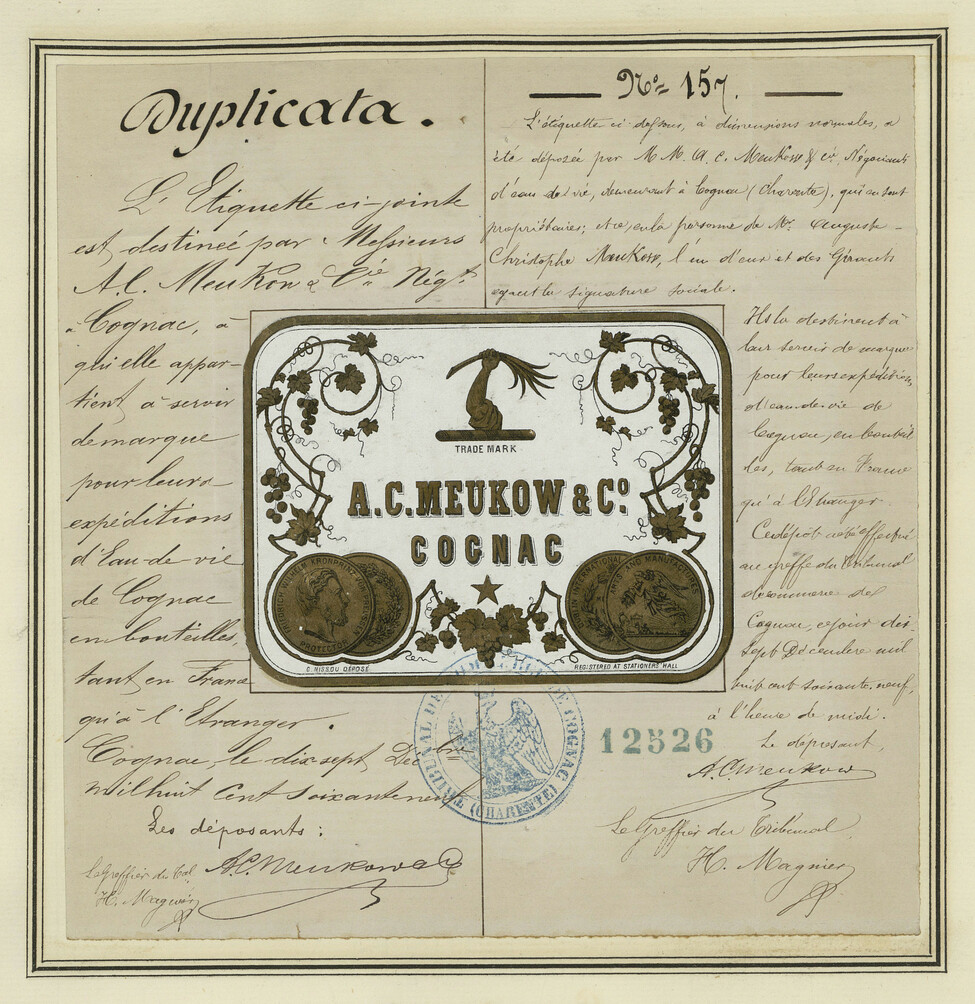 Duplicata.
L'Etiquette ci-jointe
est destinée par Messieurs
A.C. Meukow & Cie Négts
à Cognac, à
qu'elle appar-
tient, à servir
de marque
pour leurs
expéditions
d'Eau-de-vie
de Cognac
en bouteilles,
tant en France
qu'à l'Etranger.
Cognac, le dix sept Décbre
mil huit cent soixante neuf
Les déposants:
A.C. Meukow & Co
Le Greffier du Tal
H. Magnier
No 157.
L'étiquette ci-dessous, à dimensions normales, a
été déposée par M.M. A.C. Meukow & Cie Négociants
d'eau de vie, demeurant à Cognac (Charente), qui en sont
propriétaires; et ce, en la personne de Mr. Auguste-
Christophe Meukow, l'un d'eux et des Gérants
ayant la signature sociale.
Ils la destinent à
leur servir de marque
pour leurs expéditions
d'eau-de-vie de
Cognac, en bouteil
les, tant en France
qu'à l'Etranger
Ce dépôt a été effectué
au greffe du Tribunal
de commerce de
Cognac, ce jour dix
Sept Décembre mil
huit cent soixante neuf,
à l'heure de midi.
Le déposant,
A.C. Meukow
Le Greffier du Tribunal
H. Magnier
TRADE MARK
A.C. MEUKOW & Co.
COGNAC
FRIEDRICH WILHELM KRONPRINZ PREUSSEN
PROTECTOR
INTERNATIONAL
ARTS AND MANUFACTURES
C. NISSOU DÉPOSÉ
REGISTERED AT STATIONERS' HALL
TRIBUNAL DE COMMERCE DE COGNAC
(CHARENTE)
12526